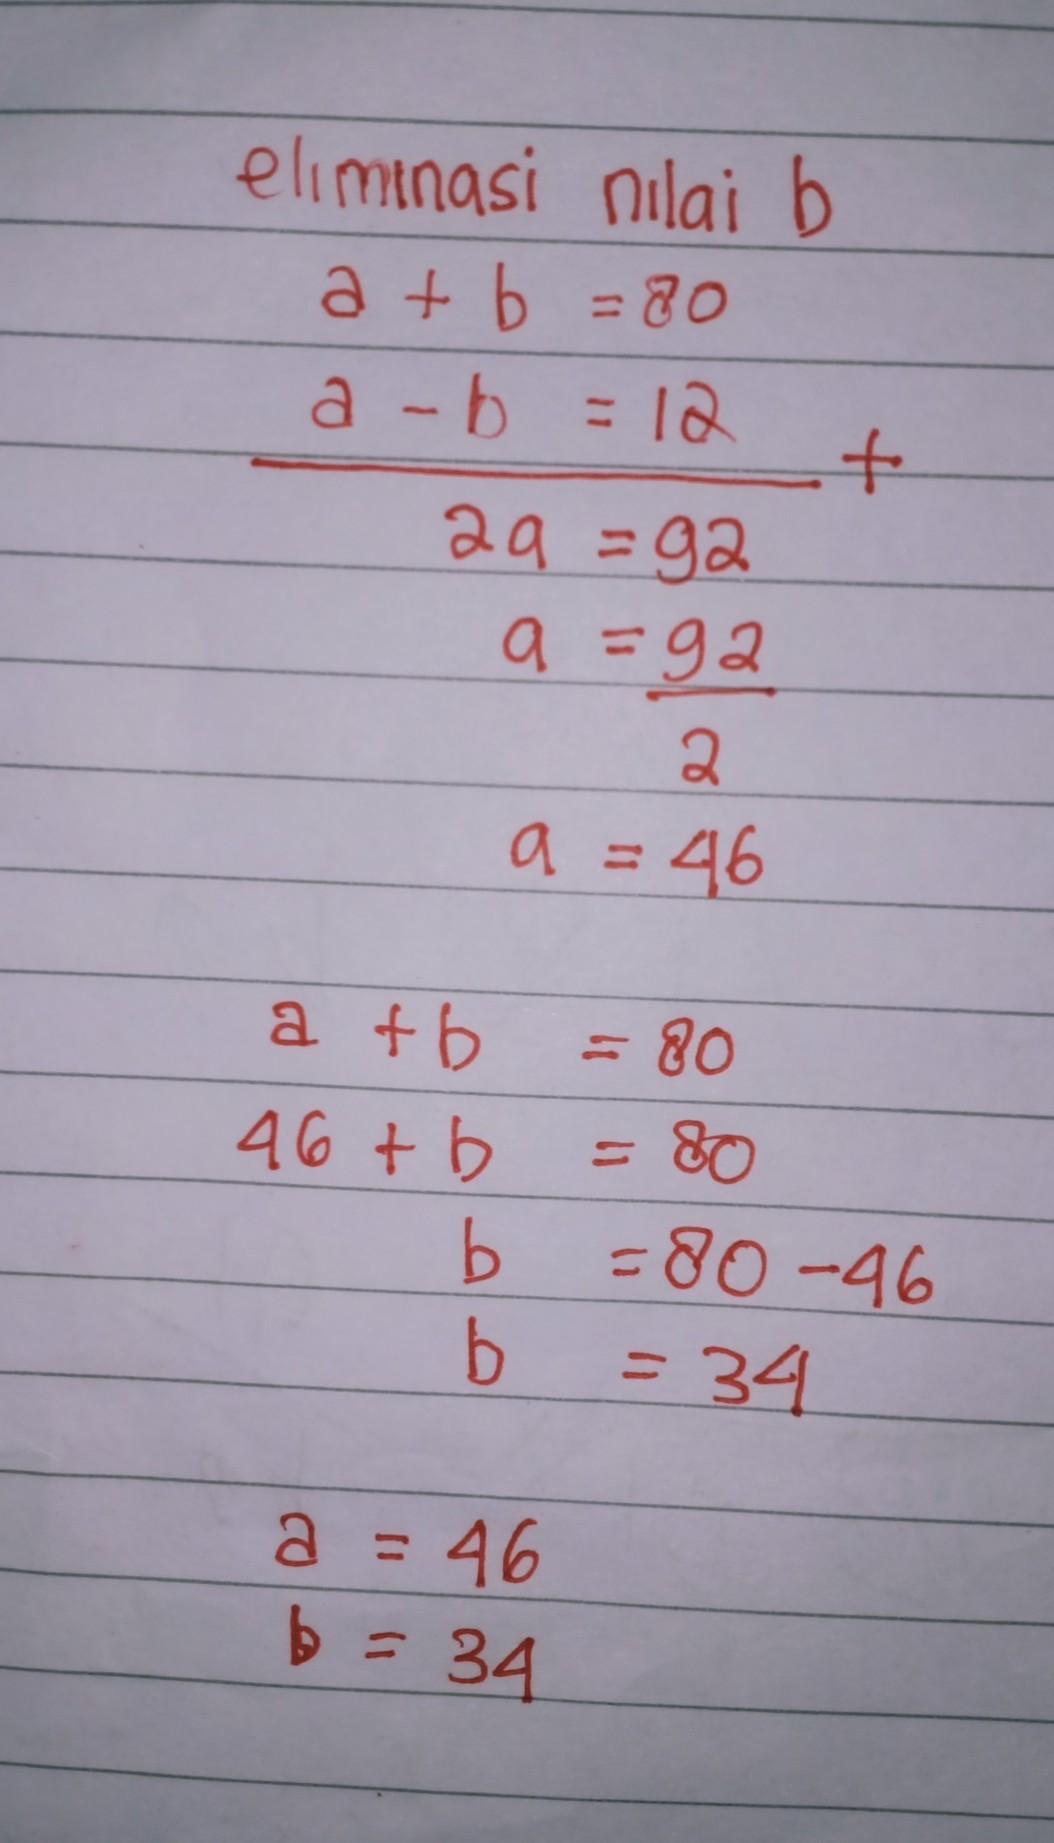 eliminasi nilai b
a + b = 80
a - b = 12
+
2a = 92
a = 92
2
a = 46
a + b = 80
46 + b = 80
b = 80 - 46
b = 34
a = 46
b = 34